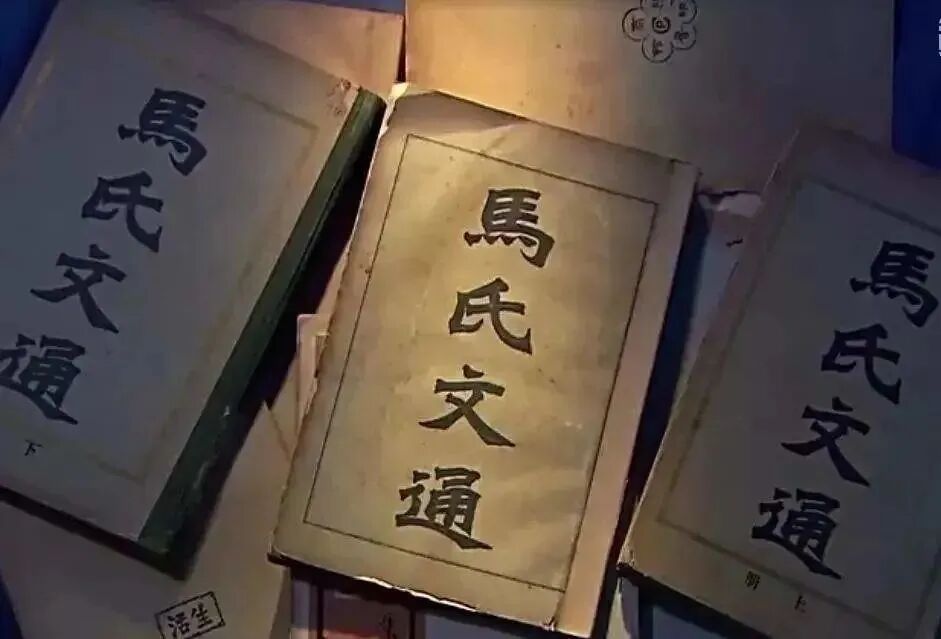 馬氏文通
下
馬氏文通
馬氏文通
上册
生活